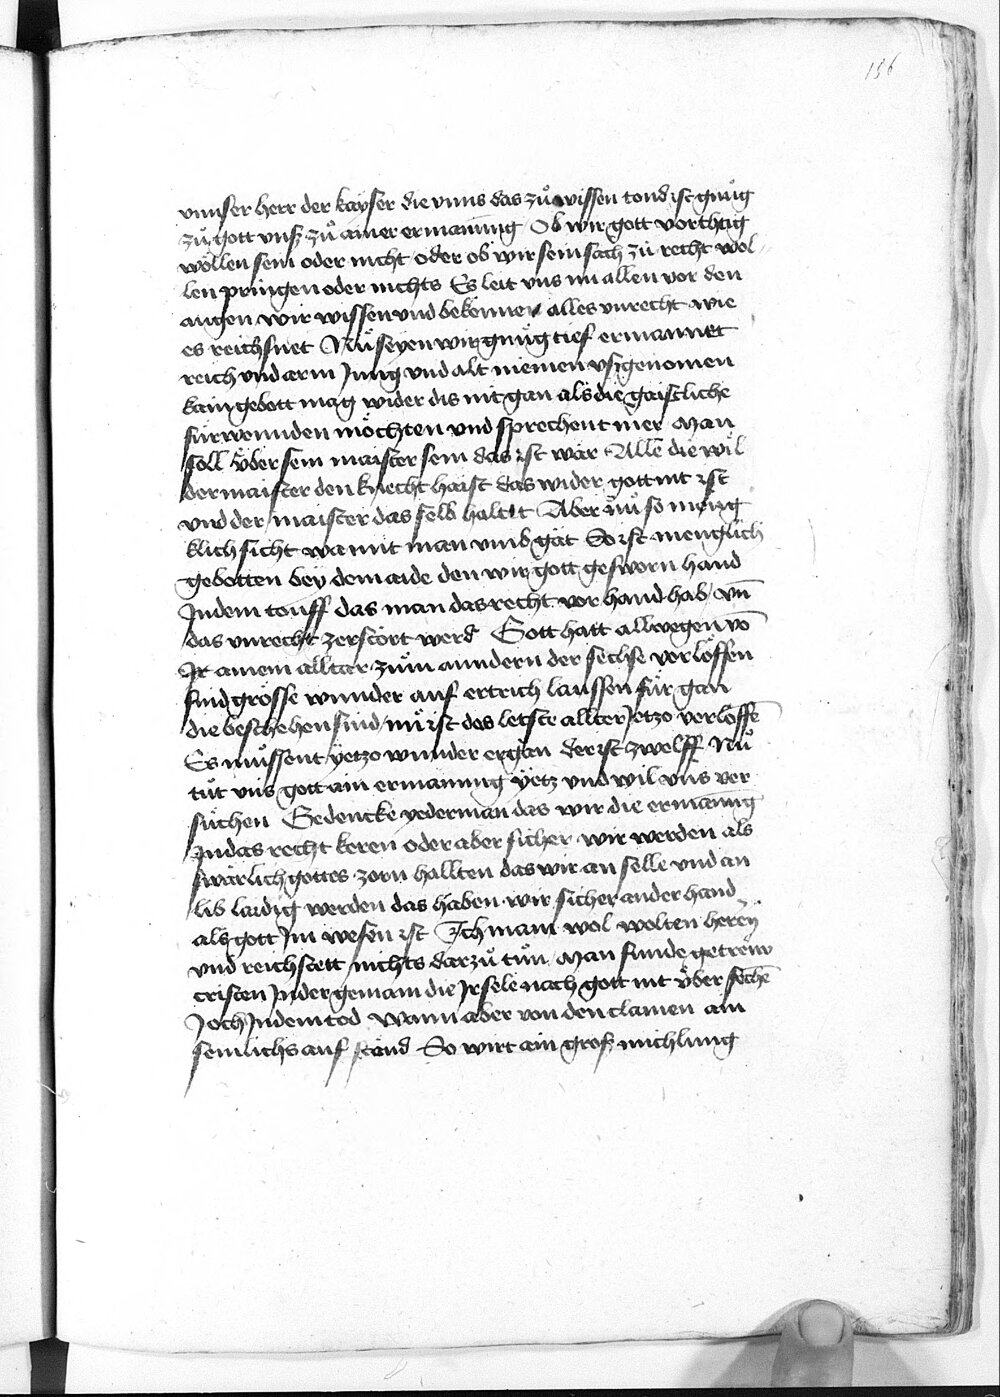 156
vnnser herr der kayser die vnns das zů wissen tond ist gnůg
zů gott vnß zů ainer ermanung Ob wir gott vorchtig
wöllen sein oder nicht oder ob wir sein sach zů recht wol-
len pringen oder nichts Es leit vns nu allen vor den
augen wir wissen vnd bekennen alles vnrecht wie
es reichßnet Nů seyen wir gnůg tief ermannet
reich vnd arm Jung vnd alt niemen vßgenomen
kain gebott mag wider dis nit gan als die gaistliche
für wennden möchten vnd sprechent mer Man
soll v̈ber sein maister sein das ist wär Alle die wil
der maister den knecht haist das wider gott nit ist
vnd der maister das selb haltet Aber nů so meng
klich sicht wa mit man vmb gät So ist menglich
gebotten bey dem aide den wir gott gesworn hand
Jn dem touff das man das recht vor hand hab vn̄
das vnrecht zerstört werd Gott hatt allwegen vō
Jr ainem allter zům anndern der sechse verloffen
sind grösse wunder auf ertrich laussen für gan
die beschehen sind nů ist das letste allter Jetzo verloffē
Es müssent yetzo wunder ergan der ist zwelff Nů
tůt vns gott ain ermanung yetz vnd wil vns ver
sůchen Gedencke yederman das wir die ermanūg
Jn das recht keren oder aber sicher wir werden als
swärlich gottes zorn hallten das wir an selle vnd an
lib laidig werden das haben wir sicher ander hand
als gott Jm wesen ist Ich main wol wolten herēn
vnd reichstett nichts darzů tůn Man funde getreẅ
cristen Jn der gemain die Jr sele nach gott nit v̈ber sechē
Joch Jn dem tod Wann aber von den clainen ain
semlichs auf ständ So wirt ain groß michlung